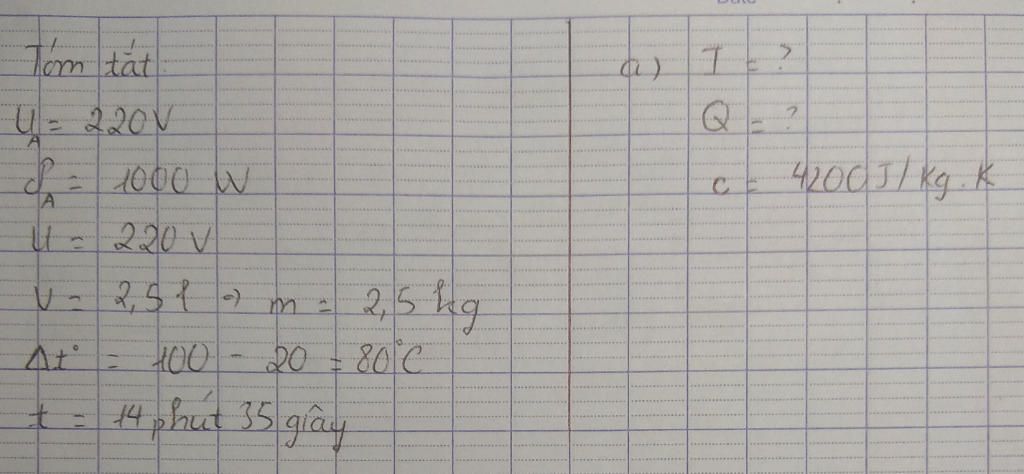 Tóm tắt:
U_A = 220V
P_A = 1000 W
U = 220 V
V = 2,5 l => m = 2,5 kg
Δt° = 100 - 20 = 80°C
t = 14 phút 35 giây
a) I = ?
Q = ?
c = 4200J/kg.K